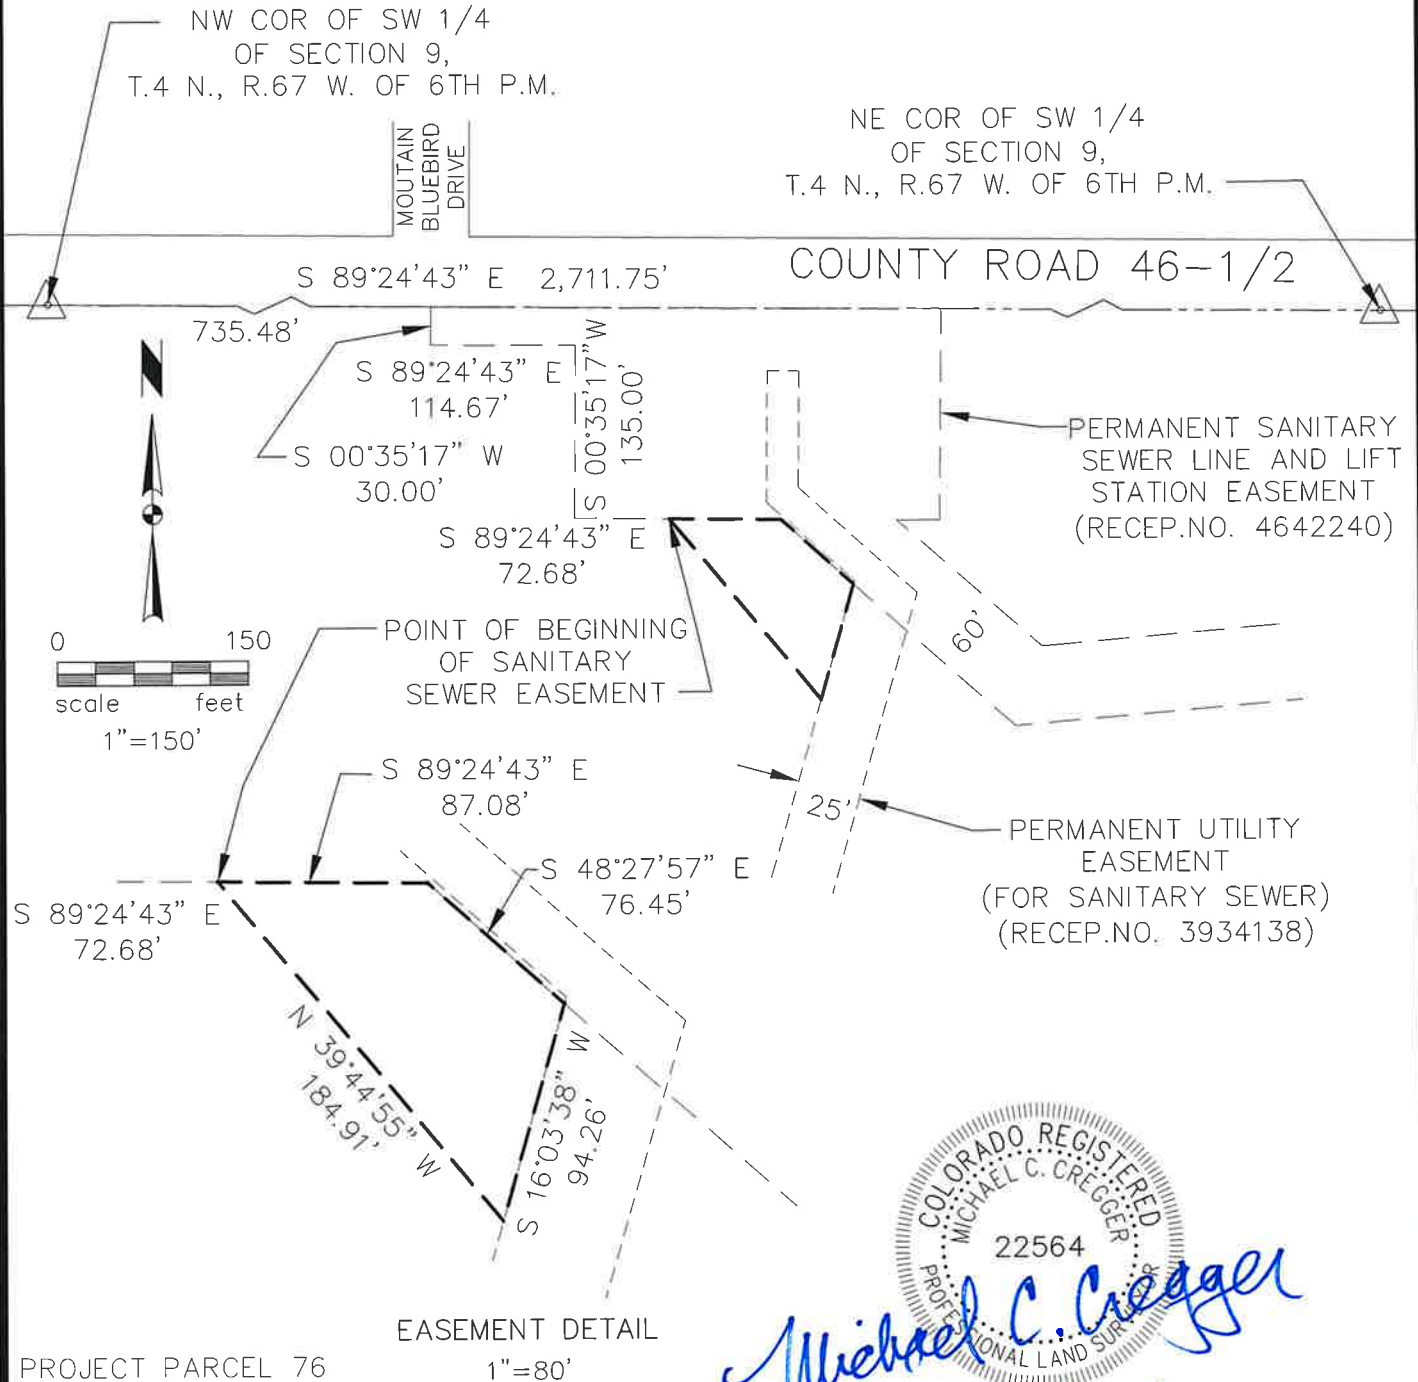 NW COR OF SW 1/4
OF SECTION 9,
T.4 N., R.67 W. OF 6TH P.M.
NE COR OF SW 1/4
OF SECTION 9,
T.4 N., R.67 W. OF 6TH P.M.
MOUTAIN
BLUEBIRD
DRIVE
COUNTY ROAD 46-1/2
S 89°24'43" E 2,711.75'
735.48'
S 89°24'43" E
114.67'
S 00°35'17" W
30.00'
S 00°35'17" W
135.00'
N
S 89°24'43" E
72.68'
PERMANENT SANITARY
SEWER LINE AND LIFT
STATION EASEMENT
(RECEP.NO. 4642240)
60'
0 150
scale feet
1"=150'
POINT OF BEGINNING
OF SANITARY
SEWER EASEMENT
25'
PERMANENT UTILITY
EASEMENT
(FOR SANITARY SEWER)
(RECEP.NO. 3934138)
S 89°24'43" E
87.08'
S 48°27'57" E
76.45'
S 89°24'43" E
72.68'
N 39°44'55" W
184.91'
S 16°03'38" W
94.26'
COLORADO REGISTERED
MICHAEL C. CREGGER
22564
PROFESSIONAL LAND SURVEYOR
Michael C. Cregger
EASEMENT DETAIL
1"=80'
PROJECT PARCEL 76